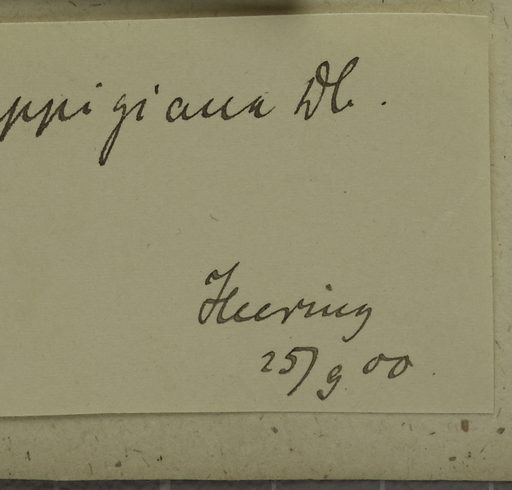 ppigiana Dl.
Heering
25/9 00